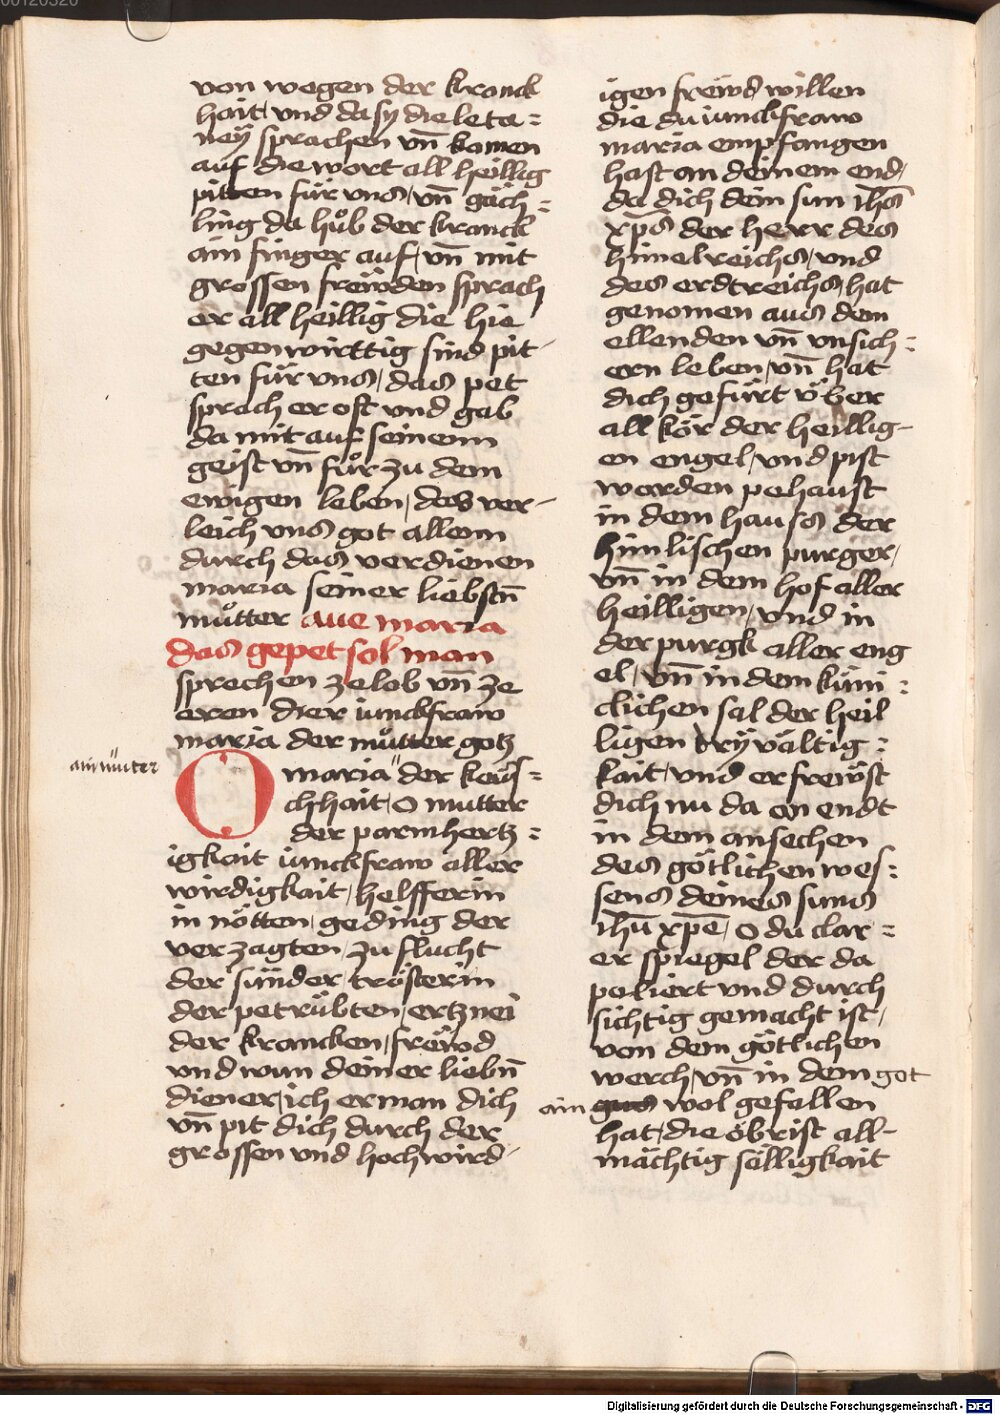 von wegen der kranck
hait, vnd da sy die leta=
neÿ sprachen vn̄ komen
auf die wort all heillig
pitten für vns, vn̄ gäch=
ling da hůb der kranck
ain finger auf, vn̄ mit
grossen frëwden sprach
er all heillig die hie
gegenwirttig sind pit-
ten für vns, das pet
sprach er oft vnd gab
da mit auf seinenn
geist vn̄ fůr zu dem
ewigen leben, des ver-
leich vns got allenn
durch das verdienen
maria seiner liebstn̄
můtter aue maria
das gepet sol man
sprechen ze lob vn̄ ze
eren dier iunckfraw
maria der můtter gotz
ain muter
O maria" der keüs=
chhait, o mutter
der parmhertz=
igkait iunckfraw aller
wirdigkait, helfferin
in nötten, geding der
verzagten, zu flucht
der sünder trösterin
der petrübten, ertznei
der krancken, frëwd
vnd wun deiner liebn̄
diener, ich erman dich
vn̄ pit dich durch der
grossen vnd hochwird-
igen frëwd willen
die du iunckfraw
maria empfangen
hast an deinem end,
da dich dein sun ih̄s
xp̄s der herr des
himelreichs, vnd
des erdtreichs, hat
genomen aus dem
ellenden vn̄ vnsich=
ern leben, vn̄ hat
dich gefürt v̈ber
all kör der heillig-
en engel, vnd pist
worden pehaust
in dem hauss der
himlischen purger,
vn̄ in dem hof aller
heilligen, vnd in
der purgk aller eng
el, vn̄ in dem küni=
clichen sal der heil
ligen dryv̈altig=
kait, vnd er frewst
dich nu da on endt
in dem ansechen
des götlichen wes=
sens deines suns
ih̄u xp̄e, o du clar=
er spiegel der da
poliert vnd durch
sichtig gemacht ist,
von dem götlichen
werch, vn̄ in dem got
ain wol gefallen
hat, die öbrist all-
mächtig sälligkait
Digitalisierung gefördert durch die Deutsche Forschungsgemeinschaft - DFG